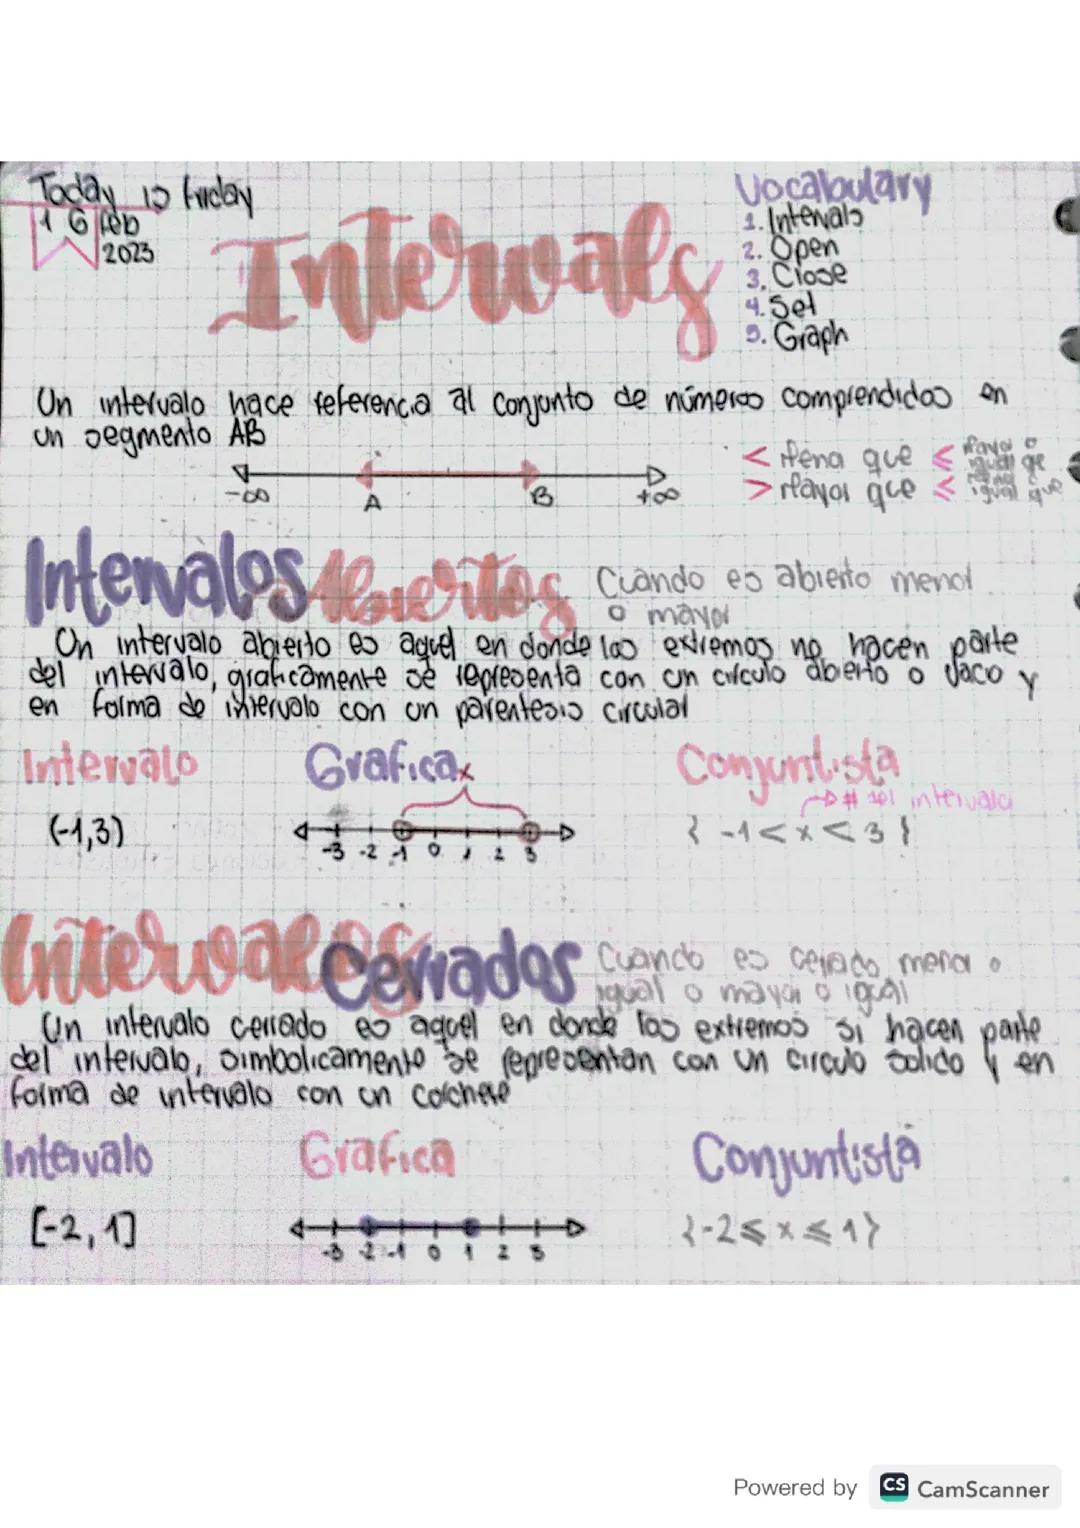 Today is friday
16 feb
2023
Intervals
Vocabulary
1. Intervals
2. Open
3. Close
4. Set
5. Graph
Un intervalo hace referencia al conjunto de números comprendidos en
un segmento AB
-∞ A B +∞
< Mena que ≤ Mayor o igual qe
> Mayor que ≤ menor o igual que
Intervalos Abiertos
Cuando es abierto menor
o mayor
Un intervalo abierto es aquel en donde los extremos no hacen parte
del intervalo, graficamente se representa con un circulo abierto o vaco y
en forma de intervalo con un parentesis circular
Intervalo Grafica Conjuntista
x
# del intervalo
(-1,3)
-3 -2 -1 0 1 2 3
{ -1 < x < 3 }
Intervalos Cerrados
Cuando es cerrado menor o
igual o mayor o igual
Un intervalo cerrado es aquel en donde los extremos si hacen parte
del intervalo, simbolicamente se representan con un circulo solido y en
forma de intervalo con un corchete
Intervalo Grafica Conjuntista
[-2, 1]
-3 -2 -1 0 1 2 3
{-2 ≤ x ≤ 1}
Powered by CS CamScanner